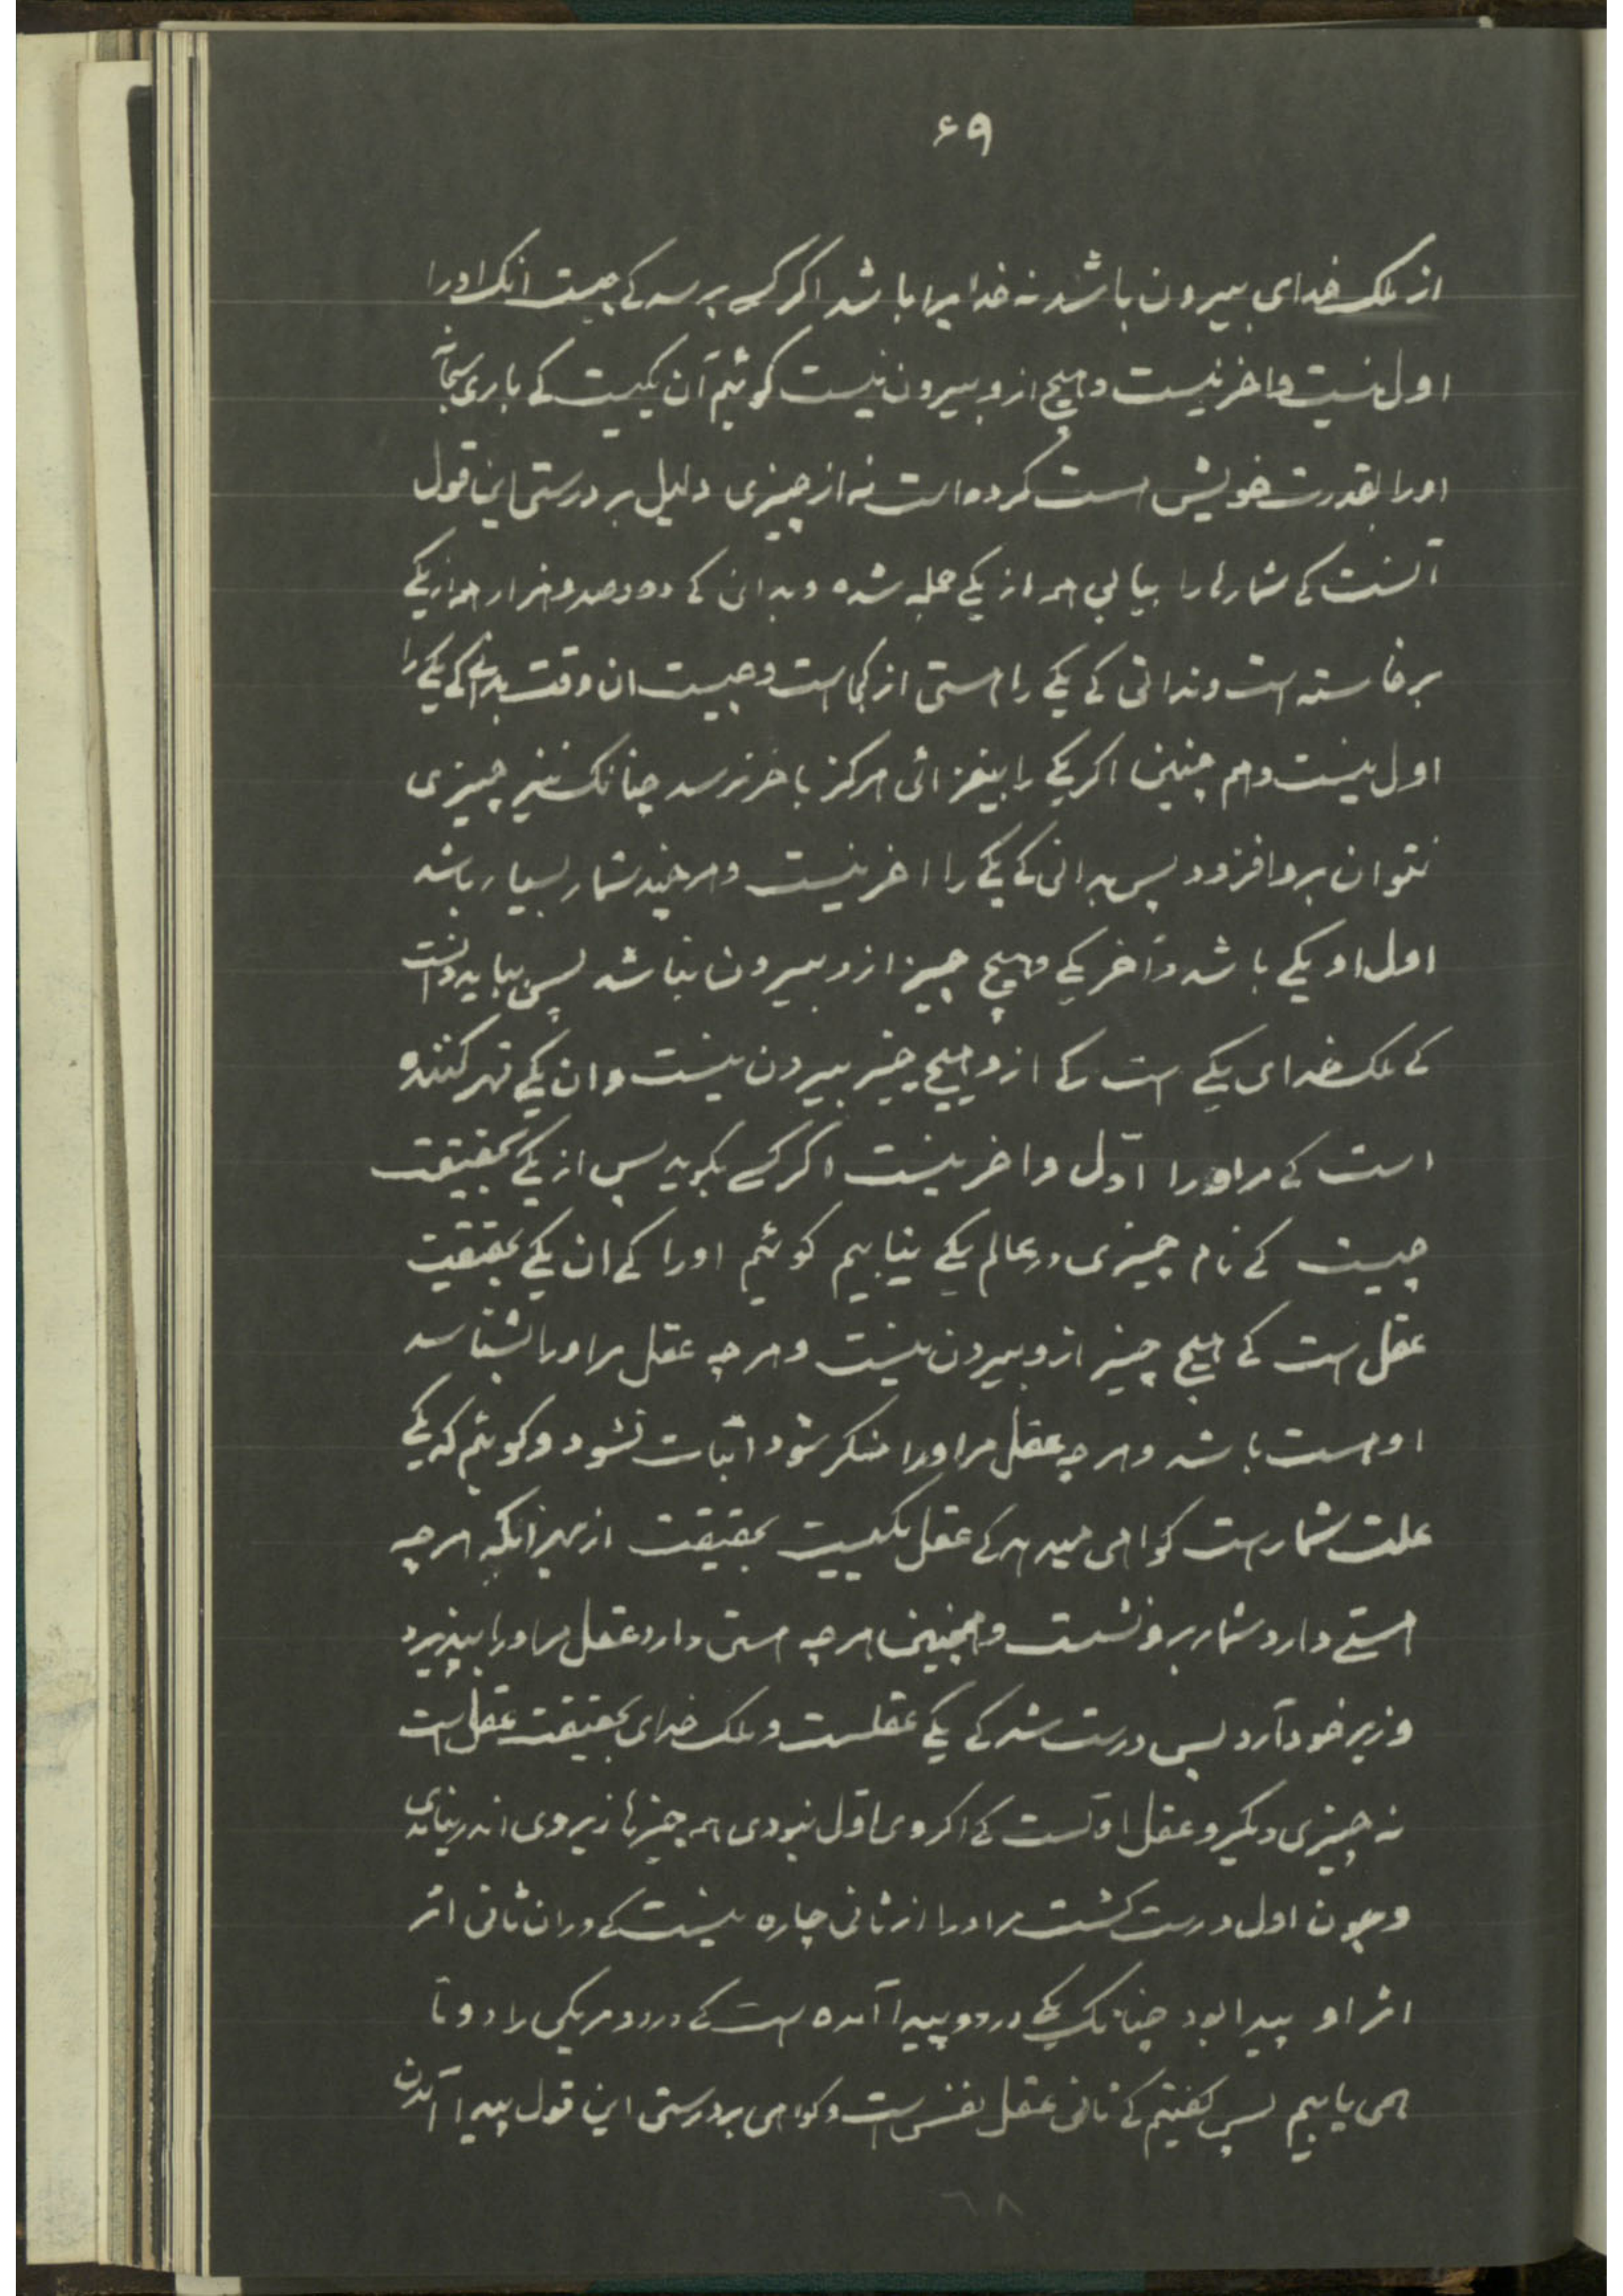 ۶۹
از ملک خدای بیرون باشد نه خدایرا باشد اکر کسے پرسد کے چیست انک اورا
اول نیست واخر نیست وهیچ ازو بیرون نیست کوئیم آن یکیست کے باری سبحانه
اورا بقدرت خویش هست کرده است نه از چیزی دلیل بر درستی این قول
آنست کے شمارها را بیابی همه از یکے جمله شده وبدانی کے ده وصد وهزار همه از یکے
برخاسته است وندانی کے یکے را هستی از کجاست وچیست ان وقت بدانی کے یکے را
اول نیست وهم چنین اکر یکے را بیفزائی هرکز باخر نرسد چنانک نیز چیزی
نتوان برو افزود پس بدانی کے یکے را اخر نیست وهر چند شمار بسیار باشد
اول او یکے باشد وآخر یکے وهیچ چیز ازو بیرون نباشد پس بباید دانست
کے ملک خدای یکے است کے ازو هیچ چیز بیرون نیست وان یکے قهر کننده
است کے مراورا اوّل واخر نیست اکر کسے بکوید پس از یکے بحقیقت
چیست کے نام چیزی در عالم یکے نیابیم کوئیم اورا کے ان یکے بحقیقت
عقل است کے هیچ چیز ازو بیرون نیست وهر چه عقل مراورا بشناسد
او هست باشد وهر چه عقل مراورا منکر شود اثبات نشود وکوئیم که یکے
علت شمارست کواهی میدهد کے عقل یکیست بحقیقت از بهر آنکه هر چه
هستے دارد شمار برو نشست وهمچنین هر چه هستی دارد عقل مراورا بپذیرد
وزیر خود آرد پس درست شد کے یکے عقلست وملک خدای بحقیقت عقل است
نه چیزی دیکر وعقل اولست کے اکر وی اوّل نبودی همه چیزها زیر وی اندر نیامدی
وچون اول درست کشت مراورا از ثانی چاره نیست کے دران ثانی اثر
اثر او پیدا بود چنانک یکے در دو پیدا آمده است کے در دو مر یکی را دو تا
همی یابیم پس کفتیم کے ثانی عقل نفس است وکواهی بر درستی این قول پیدا آمدن
۶۸